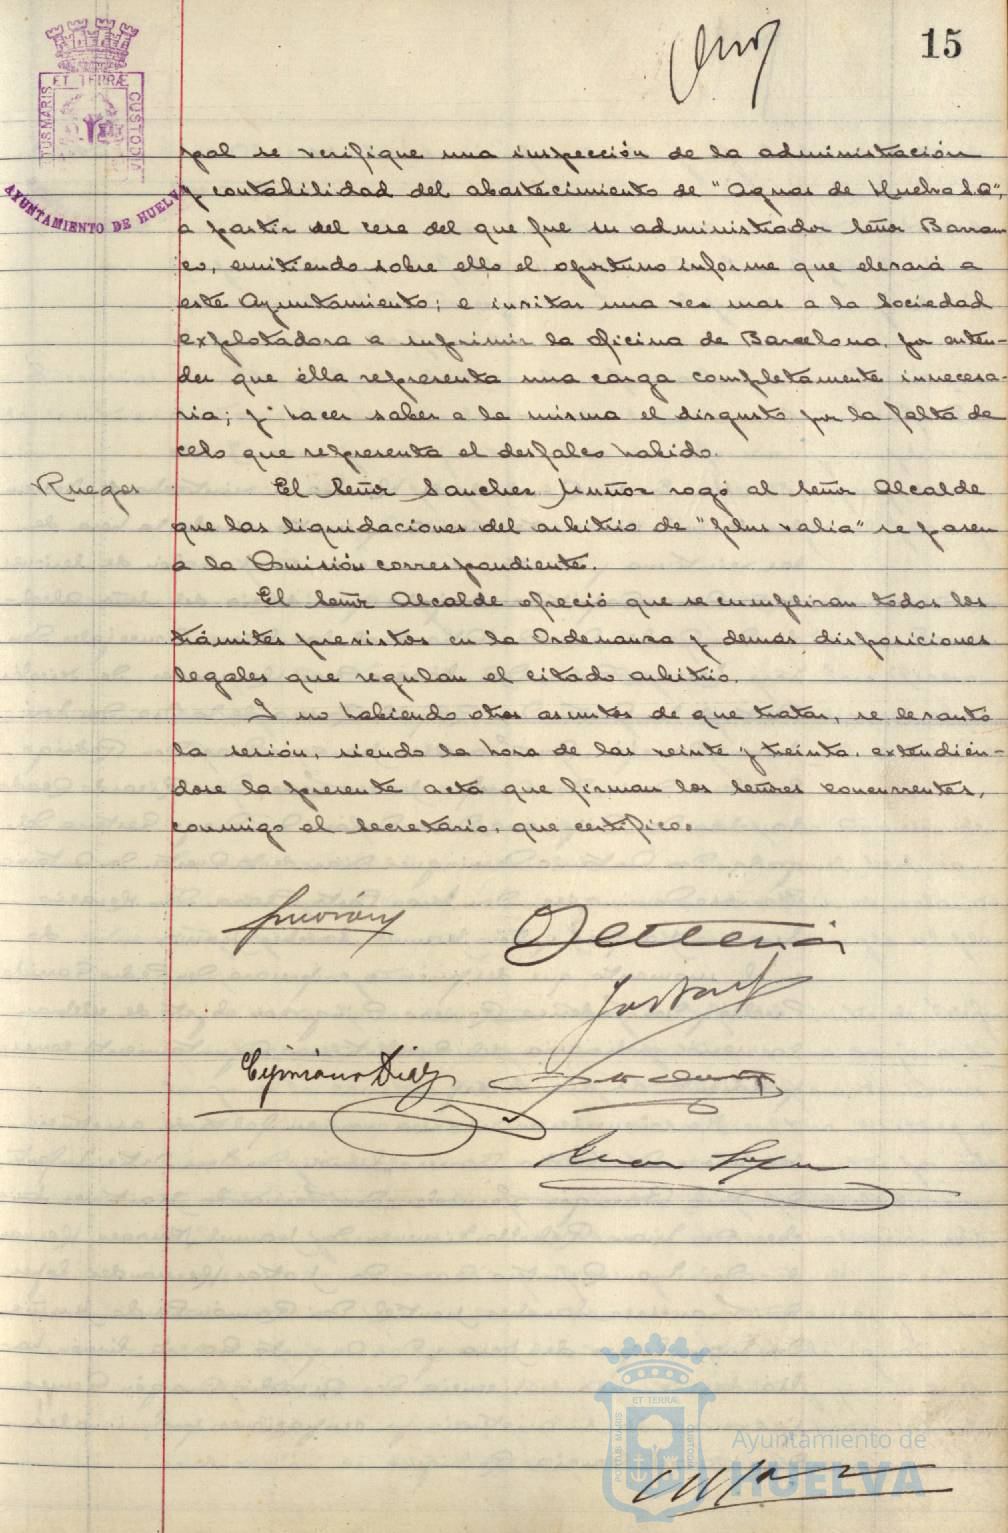 15
ET TERRÆ
CUSTODIA
AYUNTAMIENTO DE HUELVA
pal se verifique una inspección de la administración
y contabilidad del abastecimiento de "Aguas de Huelva S.A",
a partir del cese del que fue su administrador Señor Barran
co, emitiendo sobre ello el oportuno informe que elevará a
este Ayuntamiento; e invitar una vez mas a la Sociedad
explotadora a suprimir la oficina de Barcelona, por enten-
der que élla representa una carga completamente innecesa-
ria; y hacer saber a la misma el disgusto por la falta de
celo que representa el desfalco habido.
Ruegos
El Señor Sanchez Muñoz rogó al Señor Alcalde
que las liquidaciones del arbitrio de "plus valia" se pasen
a la Comisión correspondiente.
El Señor Alcalde ofreció que se cumpliran todos los
trámites previstos en la Ordenanza y demás disposiciones
legales que regulan el citado arbitrio.
Y no habiendo otros asuntos de que tratar, se levantó
la sesión, siendo la hora de las veinte y treinta, extendién-
dose la presente acta que firman los Señores concurrentes,
conmigo el Secretario, que certifico.
Cipriano Diaz
PORTUS MARIS
ET TERRÆ
CUSTODIA
Ayuntamiento de
HUELVA